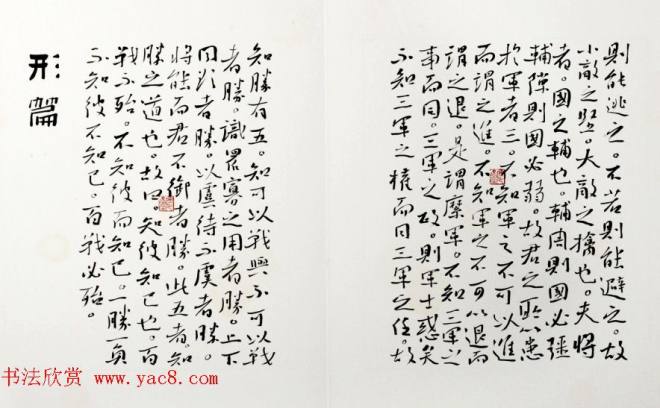 則能逃之。不若則能避之。故
小敵之堅。大敵之擒也。夫將
者。國之輔也。輔周則國必強
輔隙則國必弱。故君之所以患
於軍者三。不知軍之不可以進
而謂之進。不知軍之不可以退而
謂之退。是謂縻軍。不知三軍之
事而同。三軍之政。則軍士惑矣
不知三軍之權而同三軍之任。故
知勝有五。知可以戰與不可以戰
者勝。識眾寡之用者勝。上下
同欲者勝。以虞待不虞者勝。
將能而君不御者勝。此五者。知
勝之道也。故曰知彼知己也。百
戰不殆。不知彼而知己。一勝一負
不知彼不知己。百戰必殆。
形篇
书法欣赏 www.yac8.com